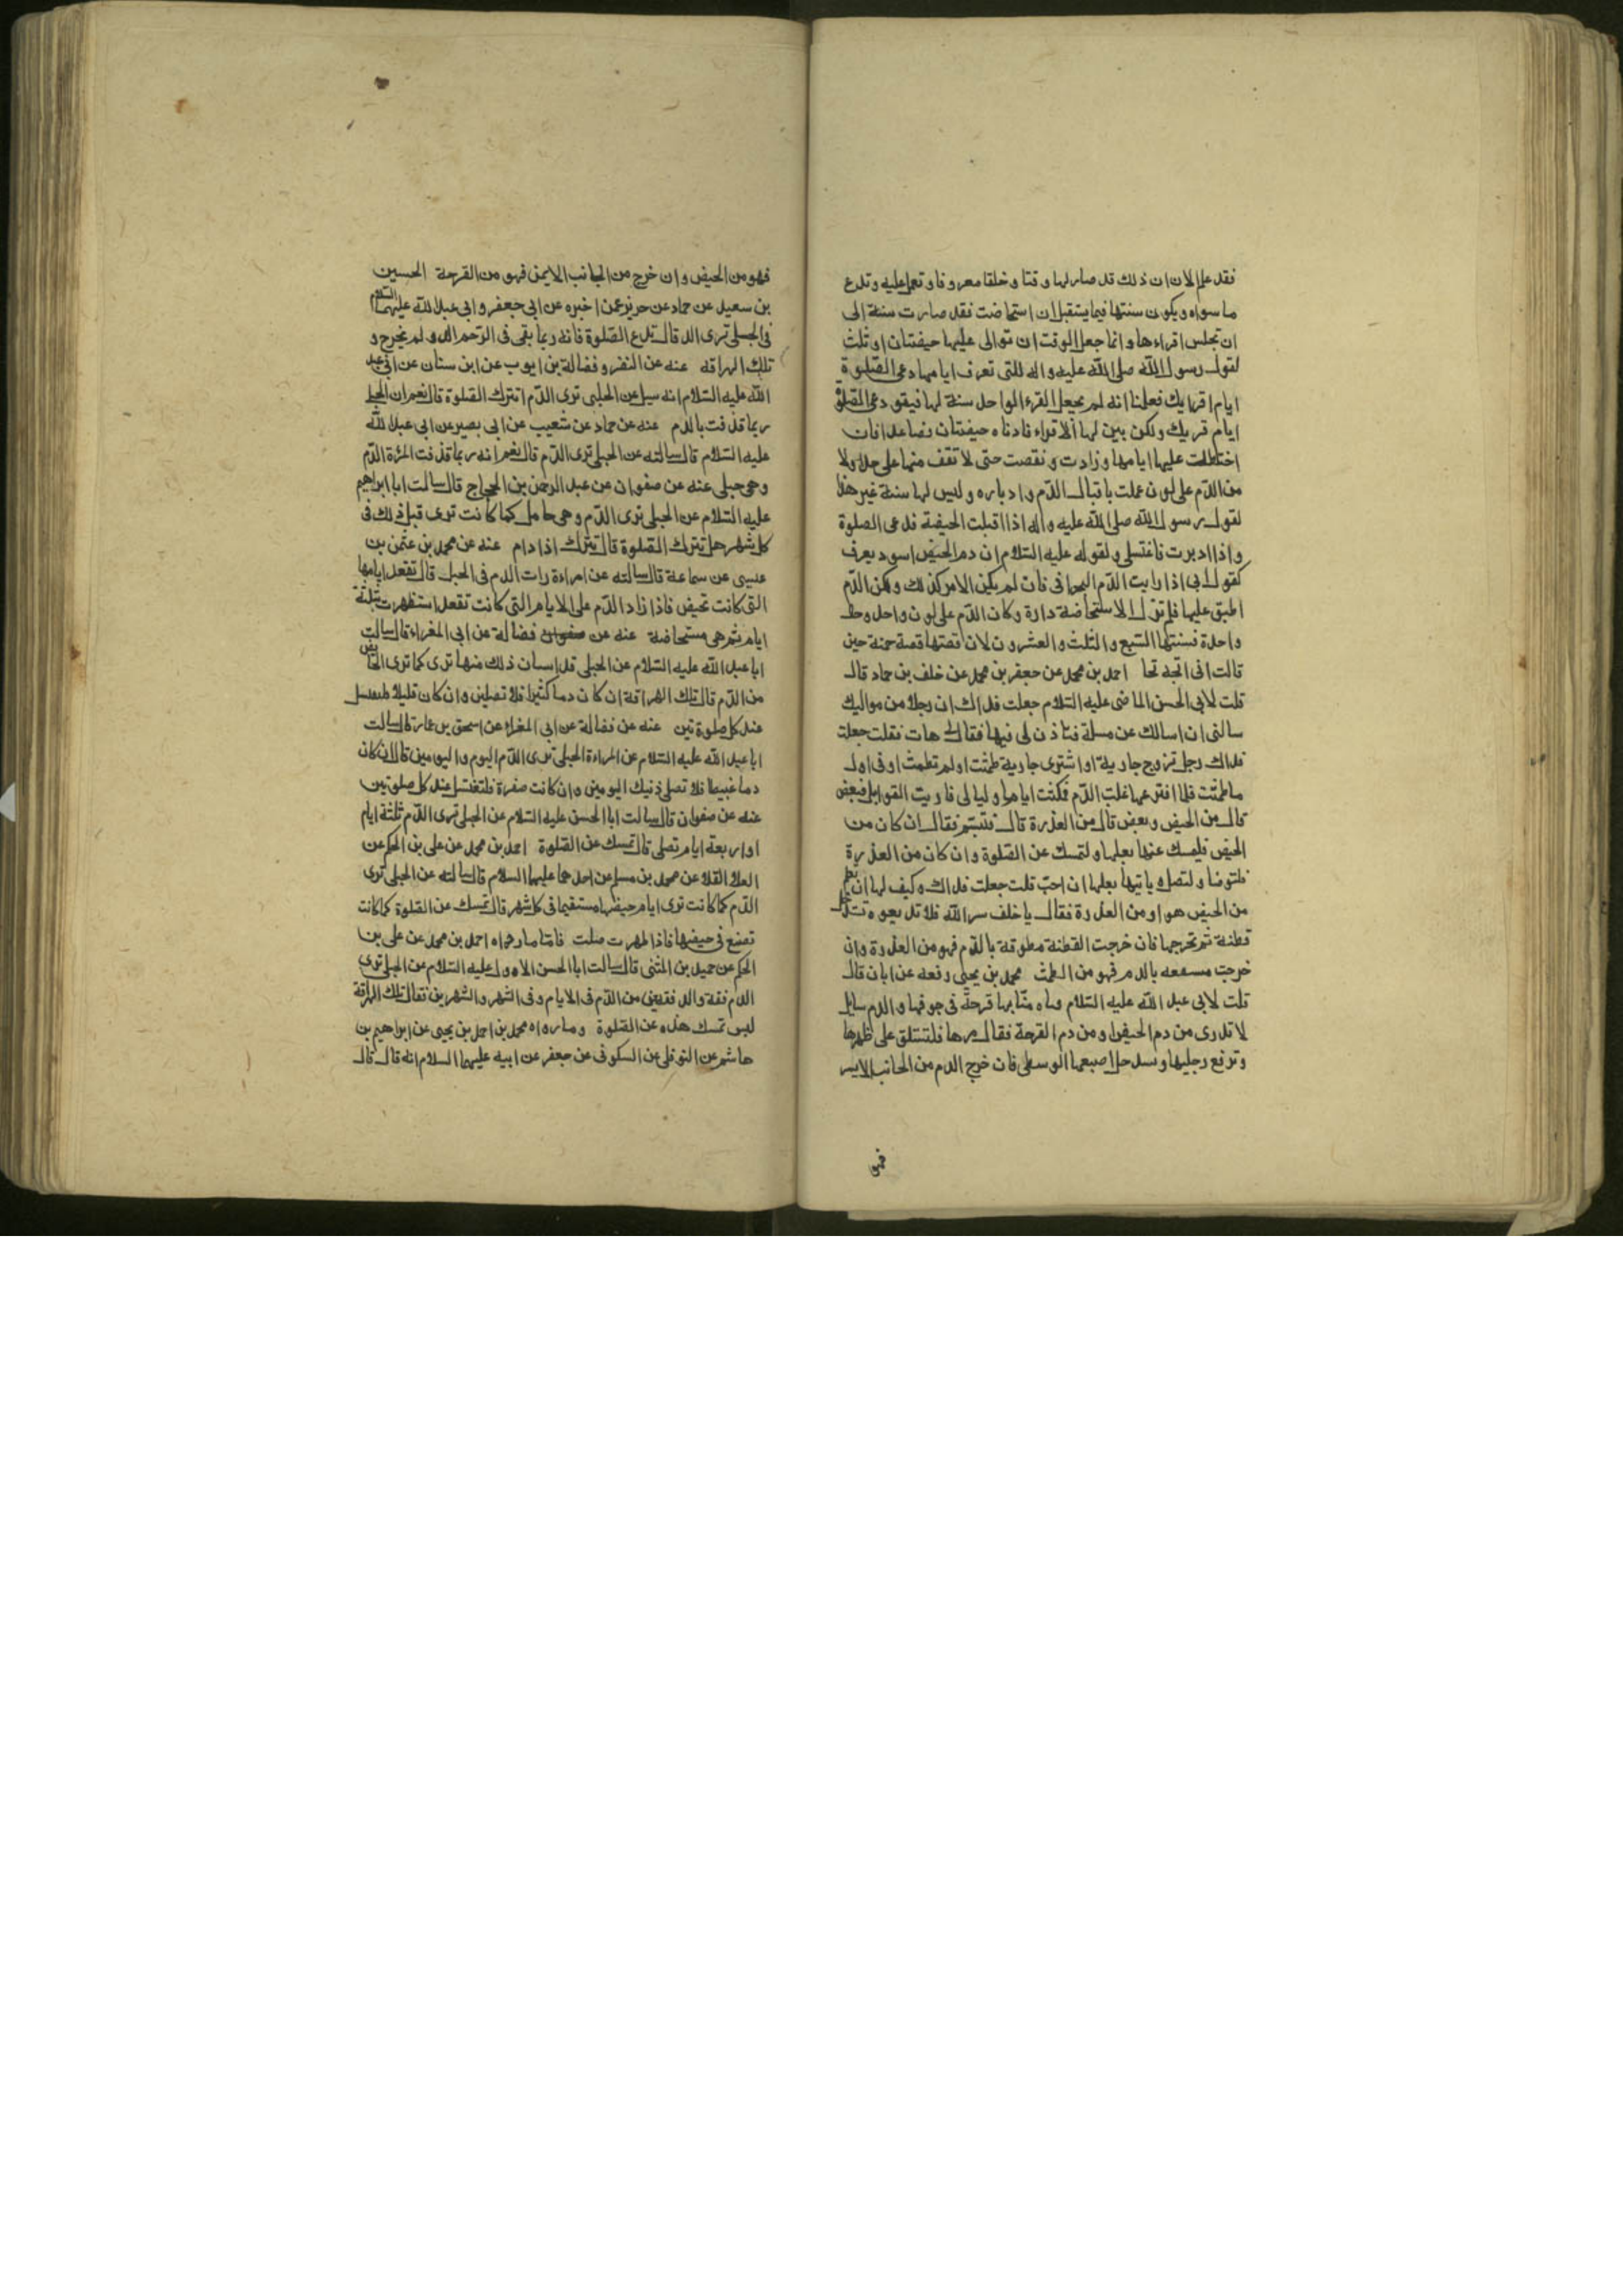 فقد علم الان ان ذلك قد صار لها وقتا وخلقا معروفا وتعمل عليه وتدع
ما سواه ويكون سنتها فيما يستقبل ان استحاضت فقد صارت سنة الى
ان تجلس اقراءها وانما جعل الوقت ان توالى عليها حيضتان او ثلث
لقول رسول الله صلى الله عليه واله للتى تعرف ايامها دعى الصلوة
ايام اقرايك فعلمنا انه لم يجعل القرء الواحد سنة لها فيقول دعى الصلوة
ايام قريك ولكن بين لها الاقراء فادناه حيضتان فصاعدا فان
اختلطت عليها ايامها وزادت ونقصت حتى لا تقف منها على حد ولا
من الدم على لون عملت باقبال الدم وادباره وليس لها سنة غير هذا
لقول رسول الله صلى الله عليه واله اذا اقبلت الحيضة فدعى الصلوة
واذا ادبرت فاغتسلى ولقوله عليه السلام ان دم الحيض اسود يعرف
كقول ابى اذا رايت الدم البحرانى فان لم يكن الامر كذلك ولكن الدم
اطبق عليها فلم تزل الاستحاضة دارة وكان الدم على لون واحد وحالة
واحدة فسنتها السبع والثلث والعشرون لان قصتها قصة حمنة حين
قالت انى اثجه ثجا احمد بن محمد عن جعفر بن محمد عن خلف بن حماد قال
قلت لابى الحسن الماضى عليه السلام جعلت فداك ان رجلا من مواليك
سالنى ان اسالك عن مسلة فتاذن لى فيها فقال لى هات فقلت جعلت
فداك رجل تزوج جارية او اشترى جارية طمثت او لم تطمث او فى اول
ما طمثت فلما افترعها غلب الدم فمكثت اياما وليالى فاريت القوابل فبعض
قال من الحيض وبعض قال من العذرة قال فتبسم فقال ان كان من
الحيض فليمسك عنها بعلها ولتمسك عن الصلوة وان كان من العذرة
فلتوضا ولتصل وياتيها بعلها ان احب قلت جعلت فداك وكيف لها ان تعلم
من الحيض هو او من العذرة فقال يا خلف سر الله فلا تذيعوه تستدخل
قطنة ثم تخرجها فان خرجت القطنة مطوقة بالدم فهو من العذرة وان
خرجت مستنقعه بالدم فهو من الطمث محمد بن يحيى رفعه عن ابان قال
قلت لابى عبد الله عليه السلام فتاه منا بها قرحة فى جوفها والدم سايل
لا تدرى من دم الحيض او من دم القرحة فقال مرها فلتستلق على ظهرها
وترفع رجليها وتستدخل اصبعها الوسطى فان خرج الدم من الجانب الايسر
فهو
فهو من الحيض وان خرج من الجانب الايمن فهو من القرحة الحسين
بن سعيد عن حماد عن حريز عمن اخبره عن ابى جعفر وابى عبد الله عليهما السلام
فى الحبلى ترى الدم قال تدع الصلوة فانه ربما بقى فى الرحم الدم ولم يخرج و
تلك الهراقة عنه عن النضر وفضالة بن ايوب عن ابن سنان عن ابى عبد
الله عليه السلام انه سيل عن الحبلى ترى الدم اتترك الصلوة قال نعم ان الحبلى
ربما قذفت بالدم عنه عن حماد عن شعيب عن ابى بصير عن ابى عبد الله
عليه السلام قال سالته عن الحبلى ترى الدم قال نعم انه ربما قذفت المرءة الدم
وهى حبلى عنه عن صفوان عن عبد الرحمن بن الحجاج قال سالت ابا ابراهيم
عليه السلام عن الحبلى ترى الدم وهى حامل كما كانت ترى قبل ذلك فى
كل شهر هل تترك الصلوة قال تترك اذا دام عنه عن محمد بن عثمن بن
عيسى عن سماعة قال سالته عن امراءة رات الدم فى الحبل قال تقعد ايامها
التى كانت تحيض فاذا زاد الدم على الايام التى كانت تقعد استظهرت بثلثة
ايام ثم هى مستحاضة عنه عن فضالة عن ابى المغراء قال سالت
ابا عبد الله عليه السلام عن الحبلى قد استبان ذلك منها ترى كما ترى الحايض
من الدم قال تلك الهراقة ان كان دما كثيرا فلا تصلين وان كان قليلا فلتغتسل
عند كل صلوتين عنه عن فضالة عن ابى المغراء عن اسحق بن عمار قال سالت
ابا عبد الله عليه السلام عن المراءة الحبلى ترى الدم اليوم واليومين قال ان كان
دما عبيطا فلا تصلى ذنيك اليومين وان كانت صفرة فلتغتسل عند كل صلوتين
عنه عن صفوان قال سالت ابا الحسن عليه السلام عن الحبلى ترى الدم ثلثة ايام
او اربعة ايام تصلى قال تمسك عن الصلوة احمد بن محمد عن على بن الحكم عن
العلا القلا عن محمد بن مسلم عن احدهما عليهما السلام قال سالته عن الحبلى ترى
الدم كما كانت ترى ايام حيضها مستقيما فى كل شهر قال تمسك عن الصلوة كما كانت
تصنع فى حيضها فاذا طهرت صلت فاما ما رواه احمد بن محمد عن على بن
الحكم عن حميد بن المثنى قال سالت ابا الحسن الاول عليه السلام عن الحبلى ترى
الدم فقة والدفقتين من الدم فى الايام وفى الشهر والشهرين فقال تلك الهراقة
ليس تمسك هذه عن الصلوة وما رواه محمد بن احمد بن يحيى عن ابراهيم بن
هاشم عن النوفلى عن السكونى عن جعفر عن ابيه عليهما السلام انه قال قال